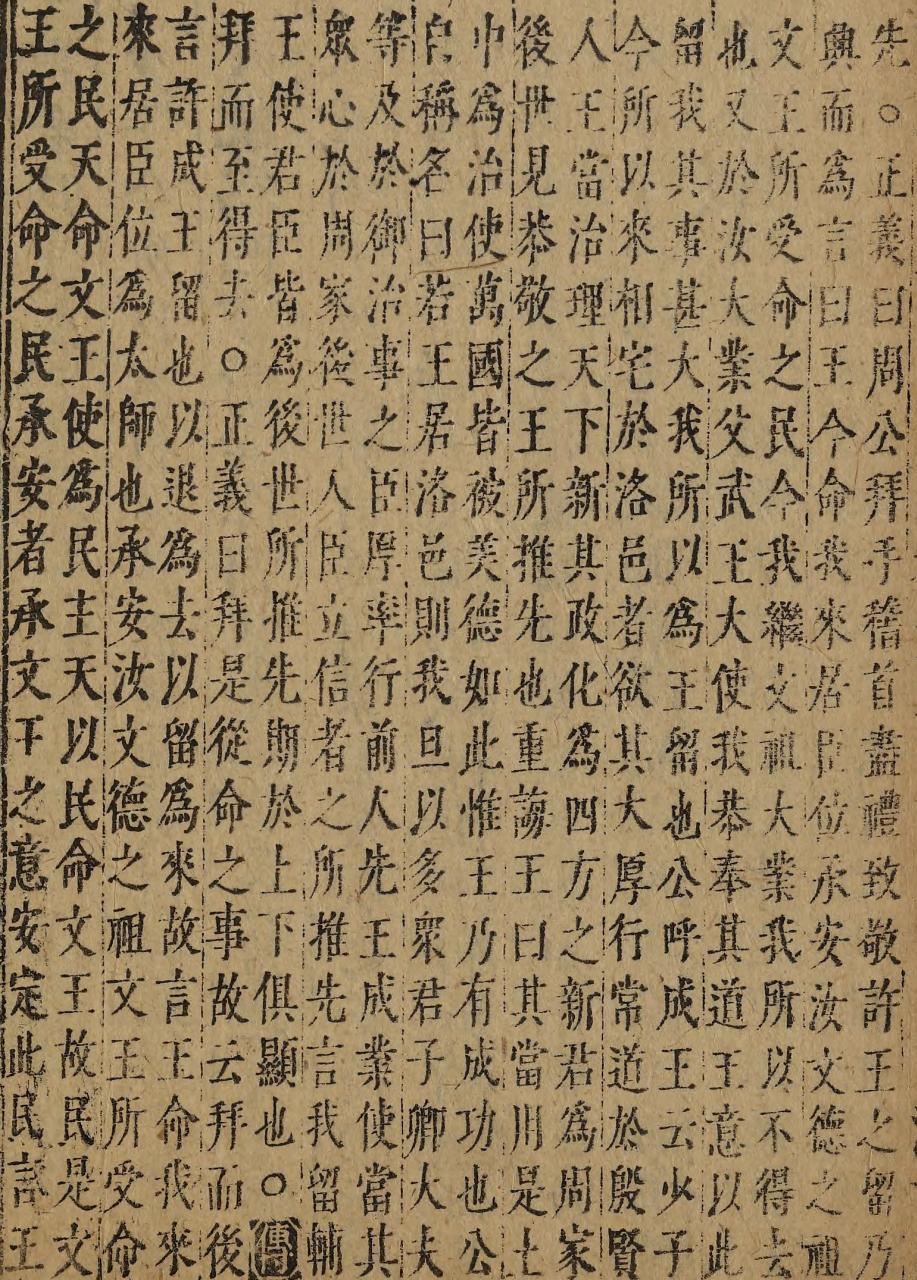 先○正義曰周公拜手稽首盡禮致敬許王之留乃
興而爲言曰王今命我來居臣位承安汝文德之祖
文王所受命之民今我繼文祖大業我所以不得去
也又於汝大業父武王大使我恭奉其道王意以此
留我其事甚大我所以爲王留也公呼成王云少子
今所以來相宅於洛邑者欲其大厚行常道於殷賢
人王當治理天下新其政化爲四方之新君爲周家
後世見恭敬之王所推先也重誨王曰其當用是土
中爲治使萬國皆被美德如此惟王乃有成功也公
自稱名曰若王居洛邑則我旦以多衆君子卿大夫
等及於御治事之臣厚率行前人先王成業使當其
衆心於周家後世人臣立信者之所推先言我留輔
王使君臣皆爲後世所推先期於上下俱顯也○傳
拜而至得去○正義曰拜是從命之事故云拜而後
言許成王留也以退爲去以留爲來故言王命我來
來居臣位爲太師也承安汝文德之祖文王所受命
之民天命文王使爲民主天以民命文王故民是文
王所受命之民承安者承文王之意安定此民言王